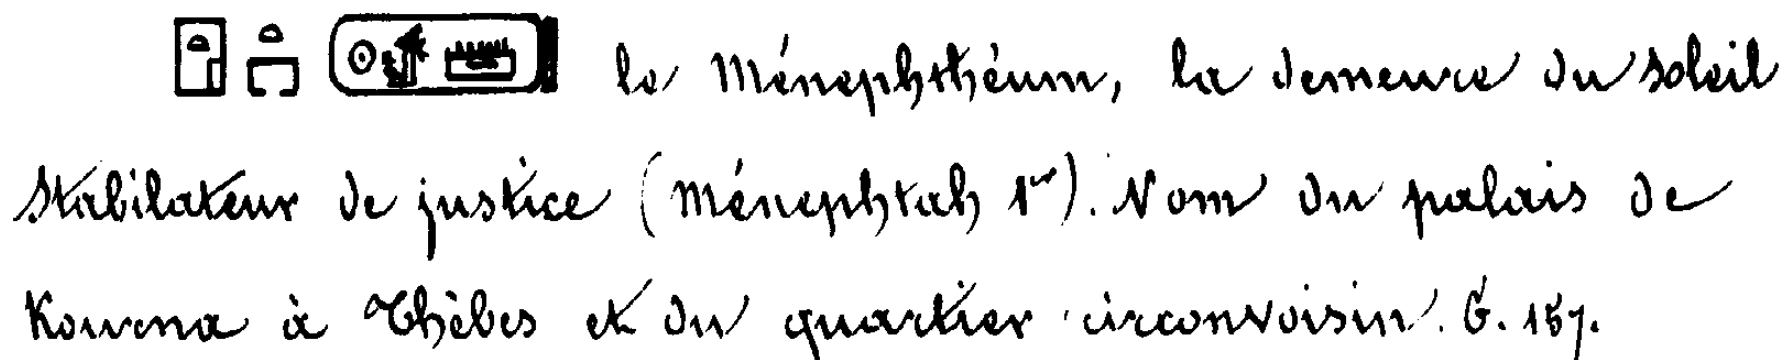 𓉗 𓏏 𓉐 𓍹 𓇳 𓁦 𓏠 𓍺 le Ménephthéum, la demeure du soleil
stabilateur de justice (Ménephtah 1er). Nom du palais de
Kourna à Thèbes et du quartier circonvoisin. G. 157.